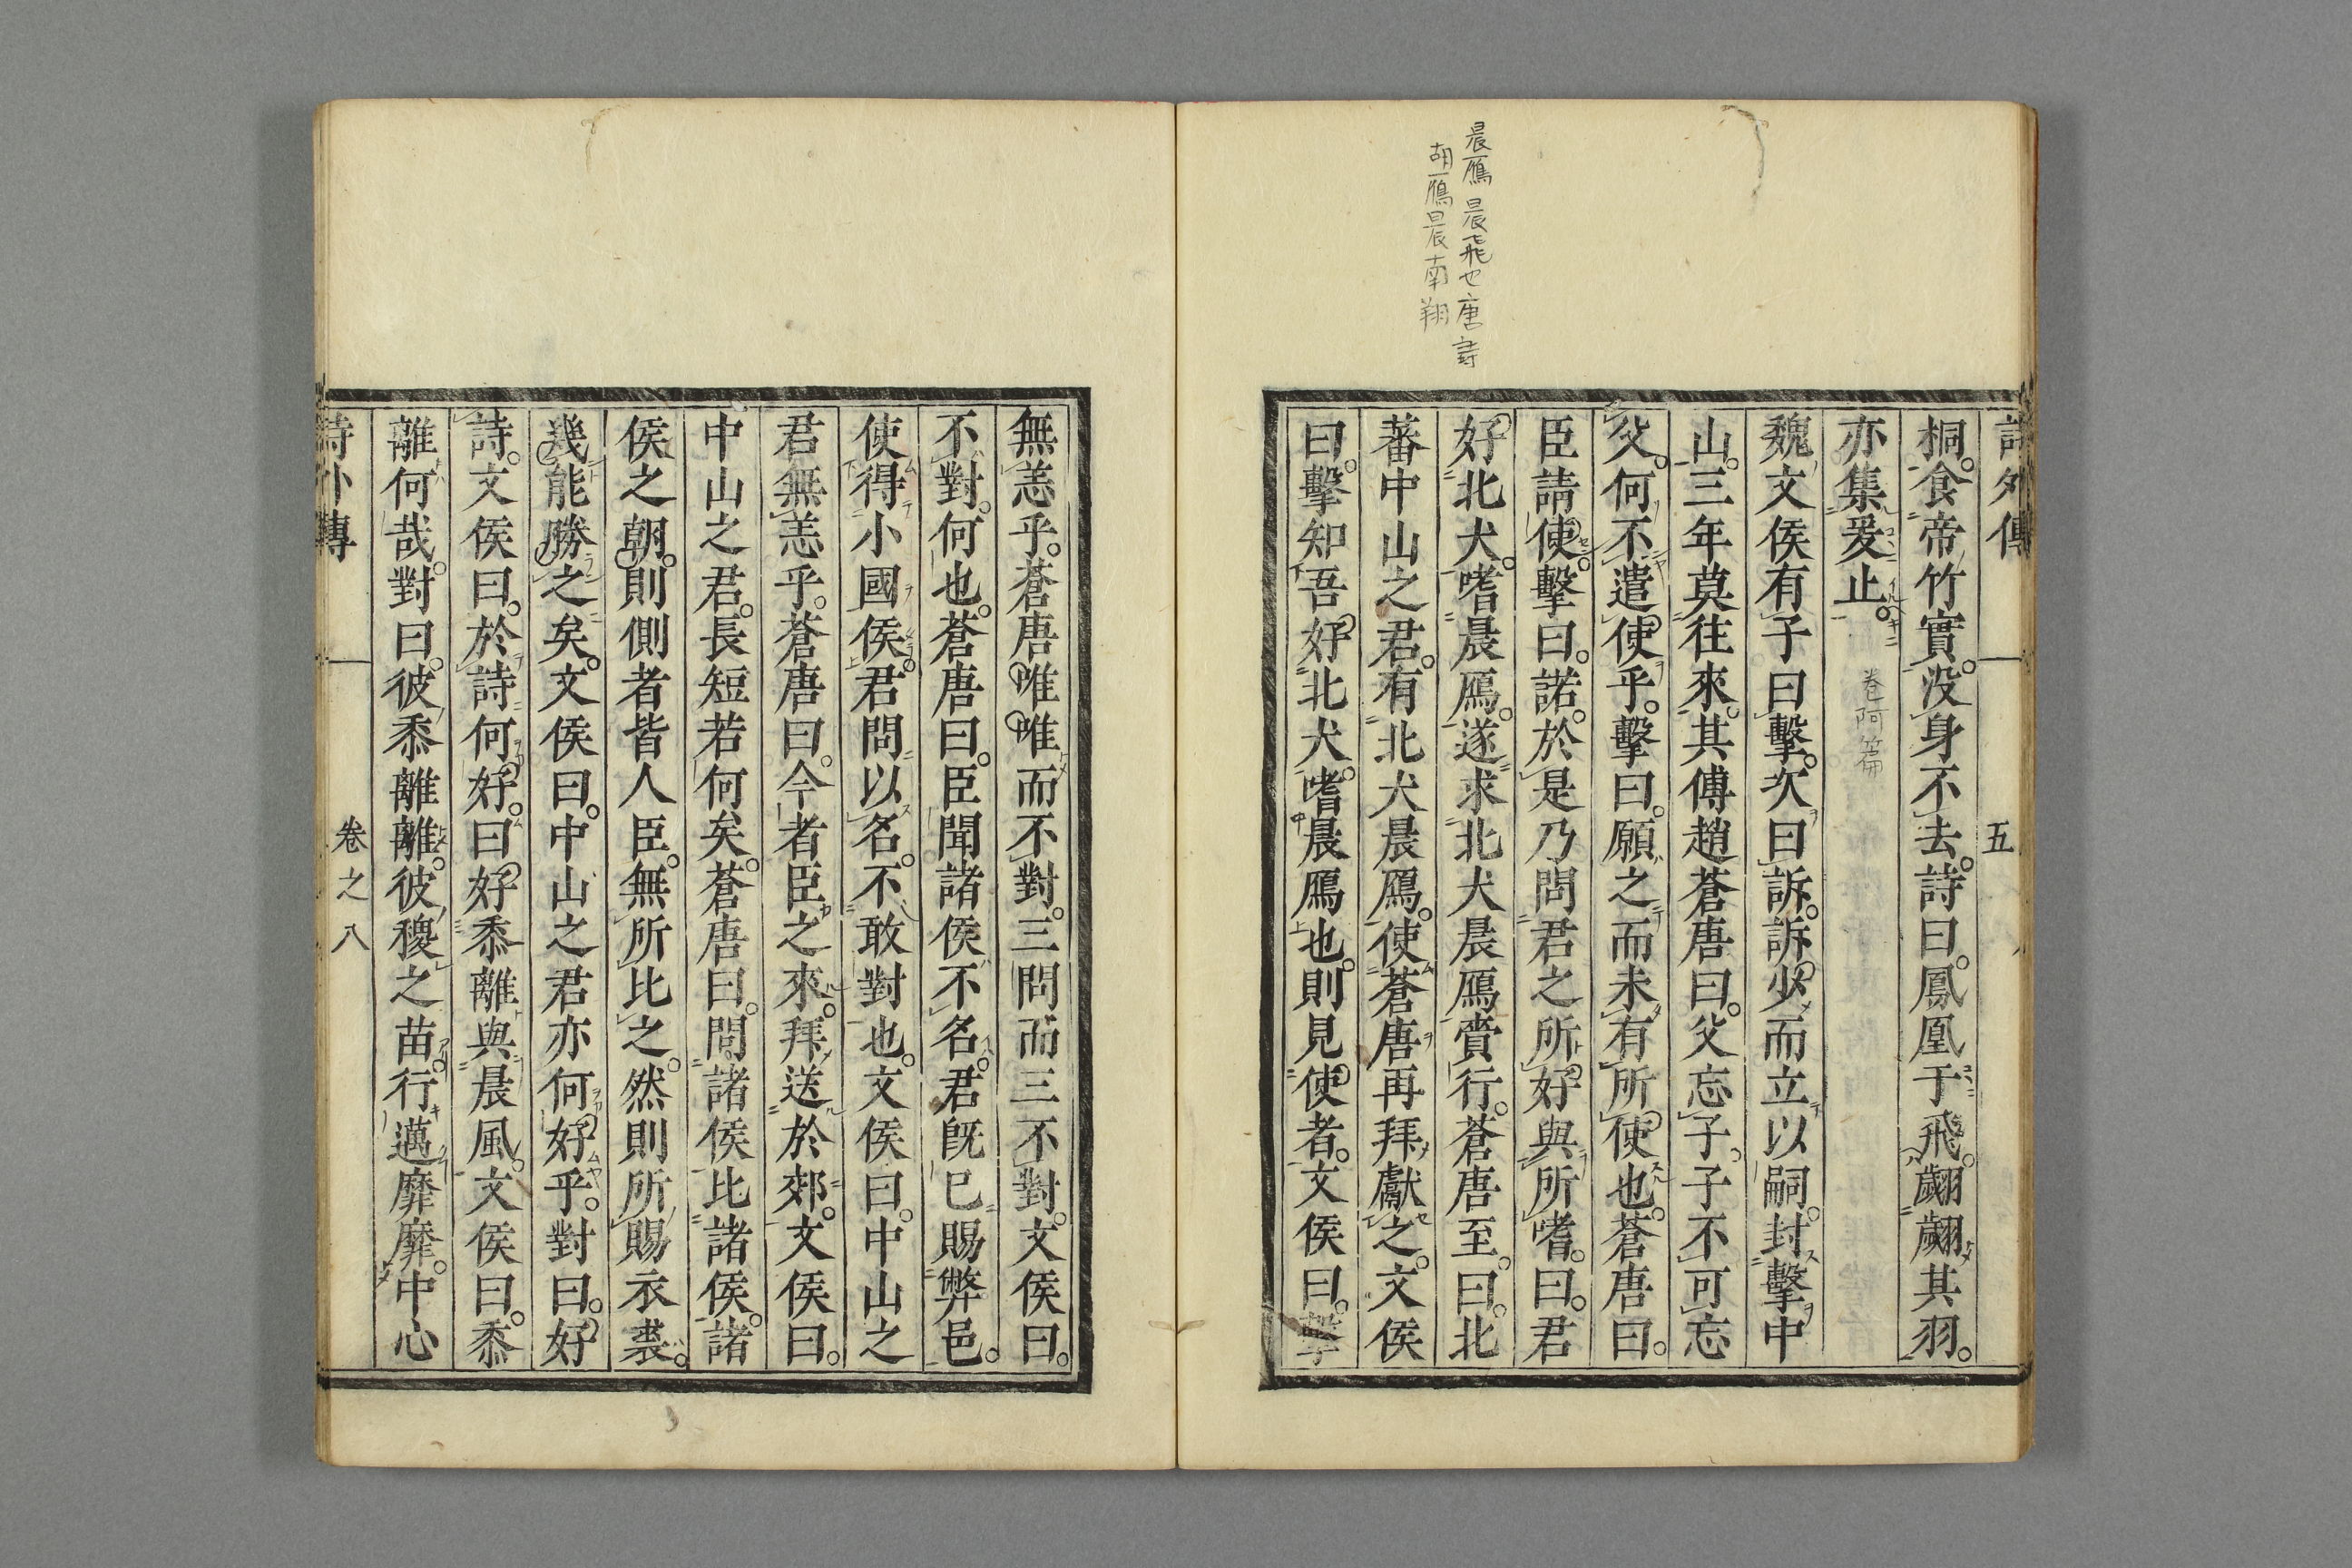 晨鴈晨飛也唐詩
胡鴈晨南翔
詩外傳 五
桐。食帝竹實。没身不去。詩曰。鳳凰于飛。翽翽其羽。
亦集爰止。
卷阿篇
魏文侯有子曰擊。次曰訴。訴少而立以嗣。封擊中
山。三年莫往來。其傅趙蒼唐曰。父忘子。子不可忘
父。何不遣使乎。擊曰。願之而未有所使也。蒼唐曰。
臣請使。擊曰。諾。於是乃問君之所好與所嗜。曰。君
好北犬。嗜晨鴈。遂求北犬晨鴈賷行。蒼唐至。曰。北
蕃中山之君。有北犬晨鴈。使蒼唐再拜獻之。文侯
曰。擊知吾好北犬。嗜晨鴈也。則見使者。文侯曰。擊
無恙乎。蒼唐唯唯而不對。三問而三不對。文侯曰。
不對。何也。蒼唐曰。臣聞諸侯不名。君旣已賜弊邑。
使得小國侯。君問以名。不敢對也。文侯曰。中山之
君無恙乎。蒼唐曰。今者臣之來。拜送於郊。文侯曰。
中山之君。長短若何矣。蒼唐曰。問諸侯比諸侯。諸
侯之朝。則側者皆人臣。無所比之。然則所賜衣裘。
幾能勝之矣。文侯曰。中山之君亦何好乎。對曰。好
詩。文侯曰。於詩何好。曰。好黍離與晨風。文侯曰。黍
離何哉。對曰。彼黍離離。彼稷之苗。行邁靡靡。中心
詩外傳 卷之八